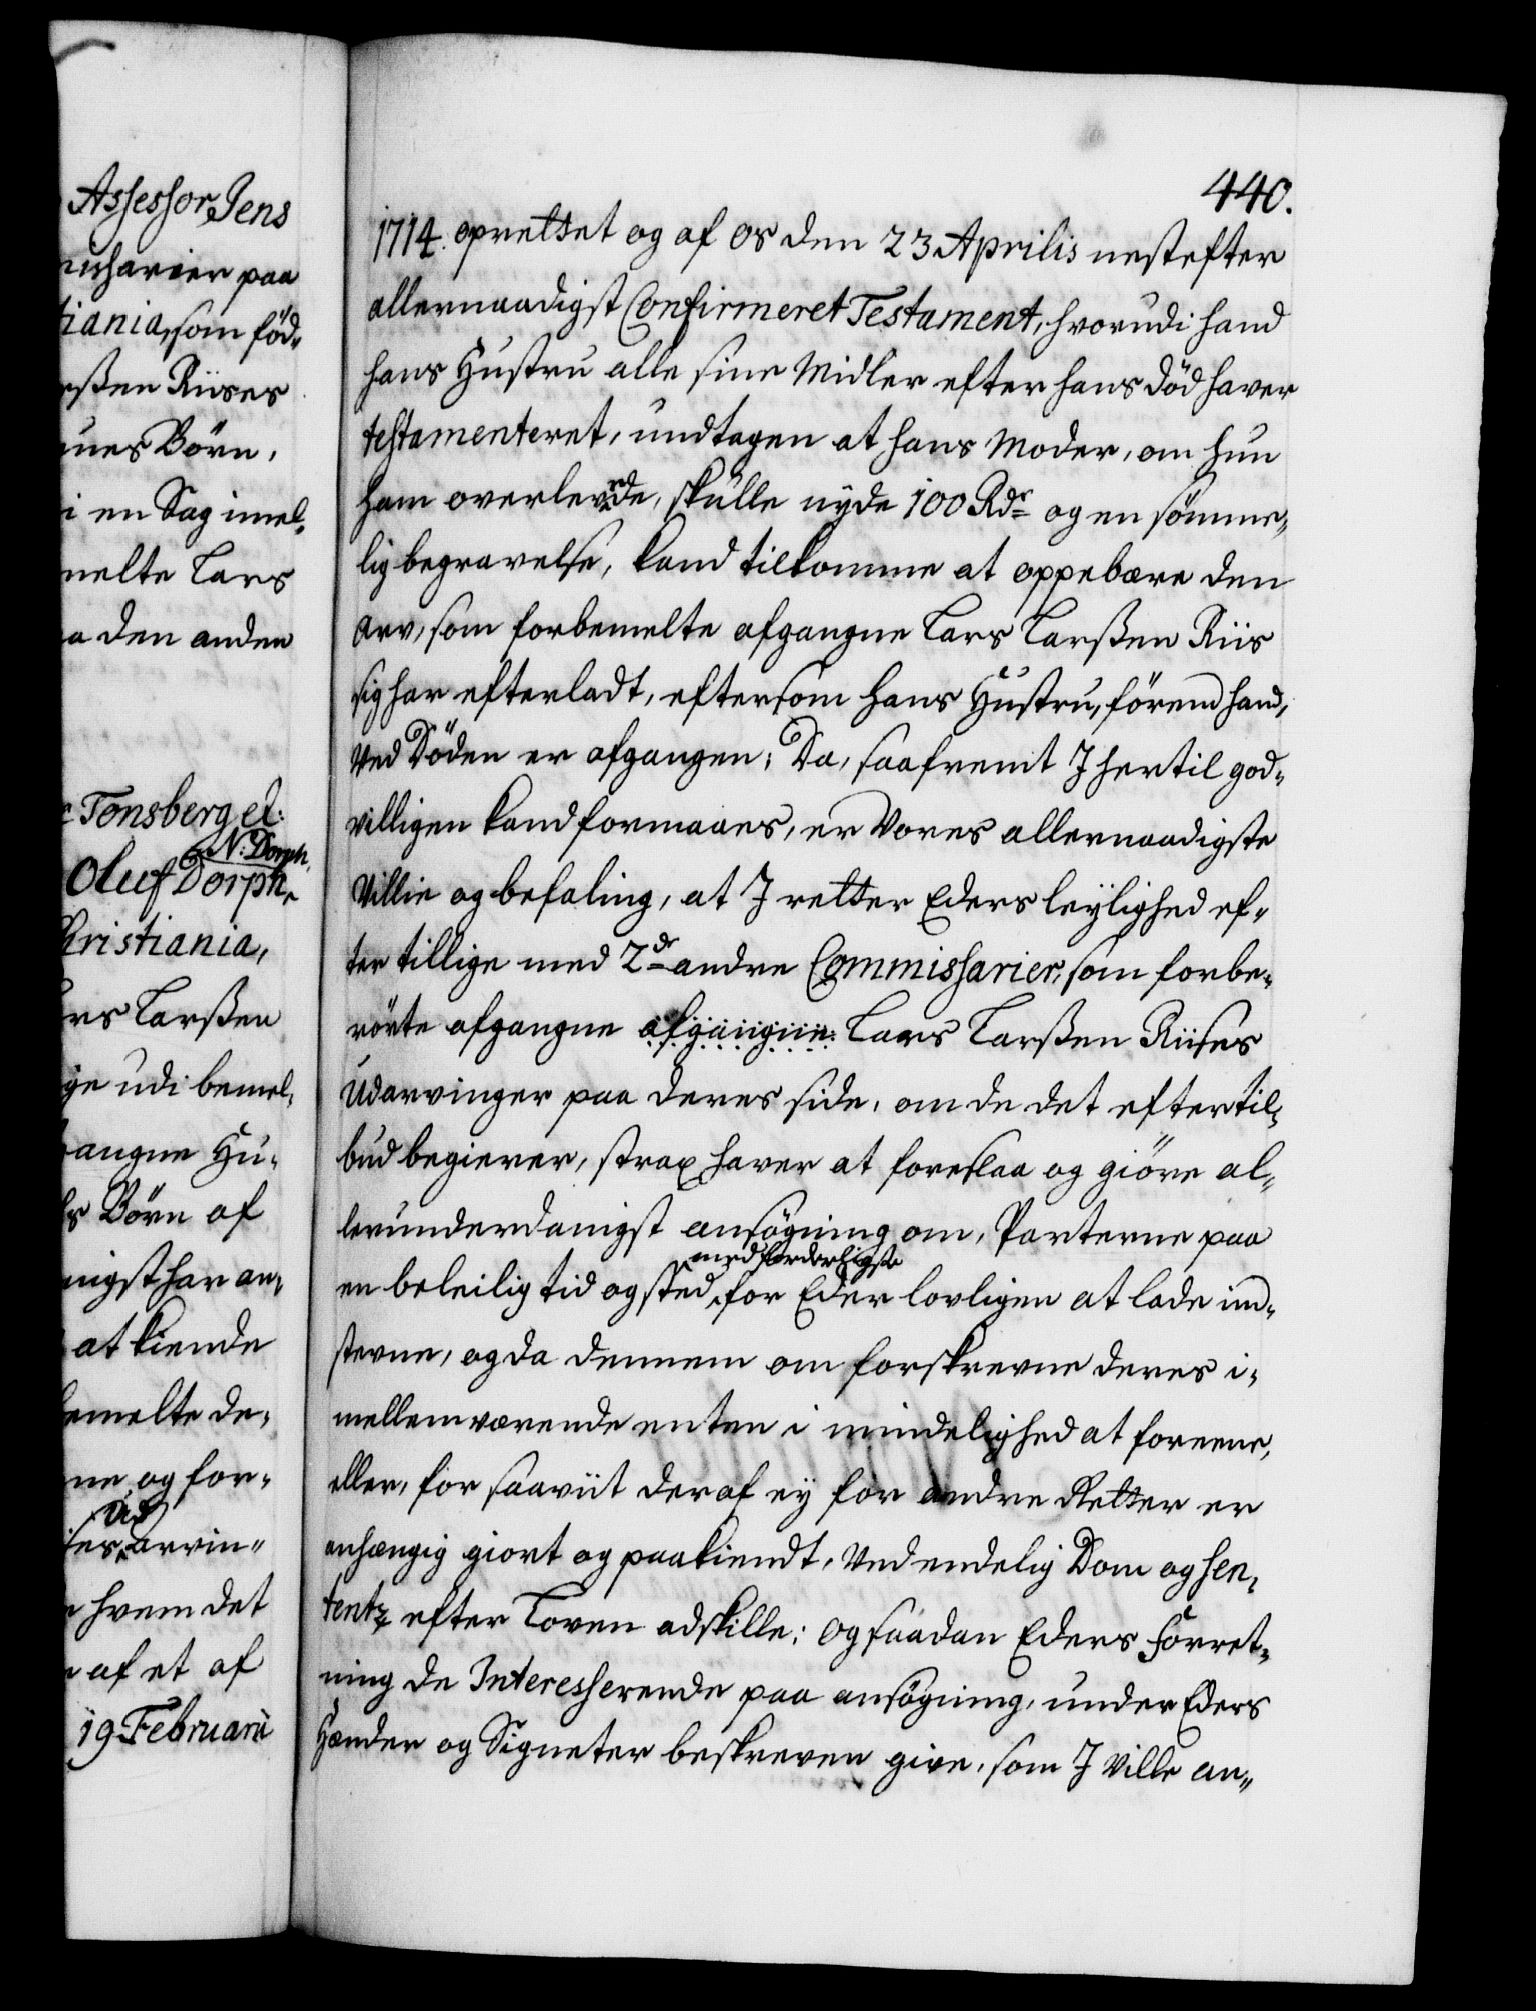 Assessor Jens
paa
tiania, som fød-
rssen Riises
Børn,
i en Sag imel-
melte Lars
a den anden
Tonsberg et:
N: Dorph,
Oluf Dorph,
Christiania,
Larssen
ge udi bemel-
gangne Hu-
Børn af
nigst har an-
at kiende
bemelte de-
ne, og for-
ud
arvin-
hvem det
af et af
19 Februarii
440.
1714. oprettet og af os den 23 Aprilis nestefter
allernaadigst Confirmeret Testament, hvorudi hand
hans Hustru alle sine Midler efter hans død haver
testamenteret, undtagen at hans Moder, om hun
ham overlevede, skulle nyde 100 Rdr og en sømme-
lig begravelse, kand tilkomme at oppebære den
Arv, som forbemelte afgangne Lars Larssen Riis
sig har efterladt, eftersom hans Hustru, førend hand,
ved Døden er afgangen; Da, saafremt J hertil god-
villigen kand formaaes, er Vores allernaadigste
Villie og befaling, at J retter Eders leylighed ef-
ter tillige med 2de andre Commissarier, som forbe-
rørte afgangne afgangne Lars Larssen Riises
Udarvinger paa deres side, om de det efter til-
bud begierer, strax haver at foreslaa og giøre al-
lerunderdanigst ansøgning om, Parterne paa
med forderligste
en beleilig tid og sted, for Eder lovligen at lade ind-
stevne, og da dennem om forskrevne deres i-
mellemværende enten i mindelighed at foreene,
eller, for saaviit deraf ey for andre Retter er
anhængig giort og paakiendt, Ved endelig Dom og Sen-
tentz efter Loven adskille; og saadan Eders Forret-
ning de Interesserende paa ansøgning, under Eders
Hænder og Signeter beskreven give, som J ville an-